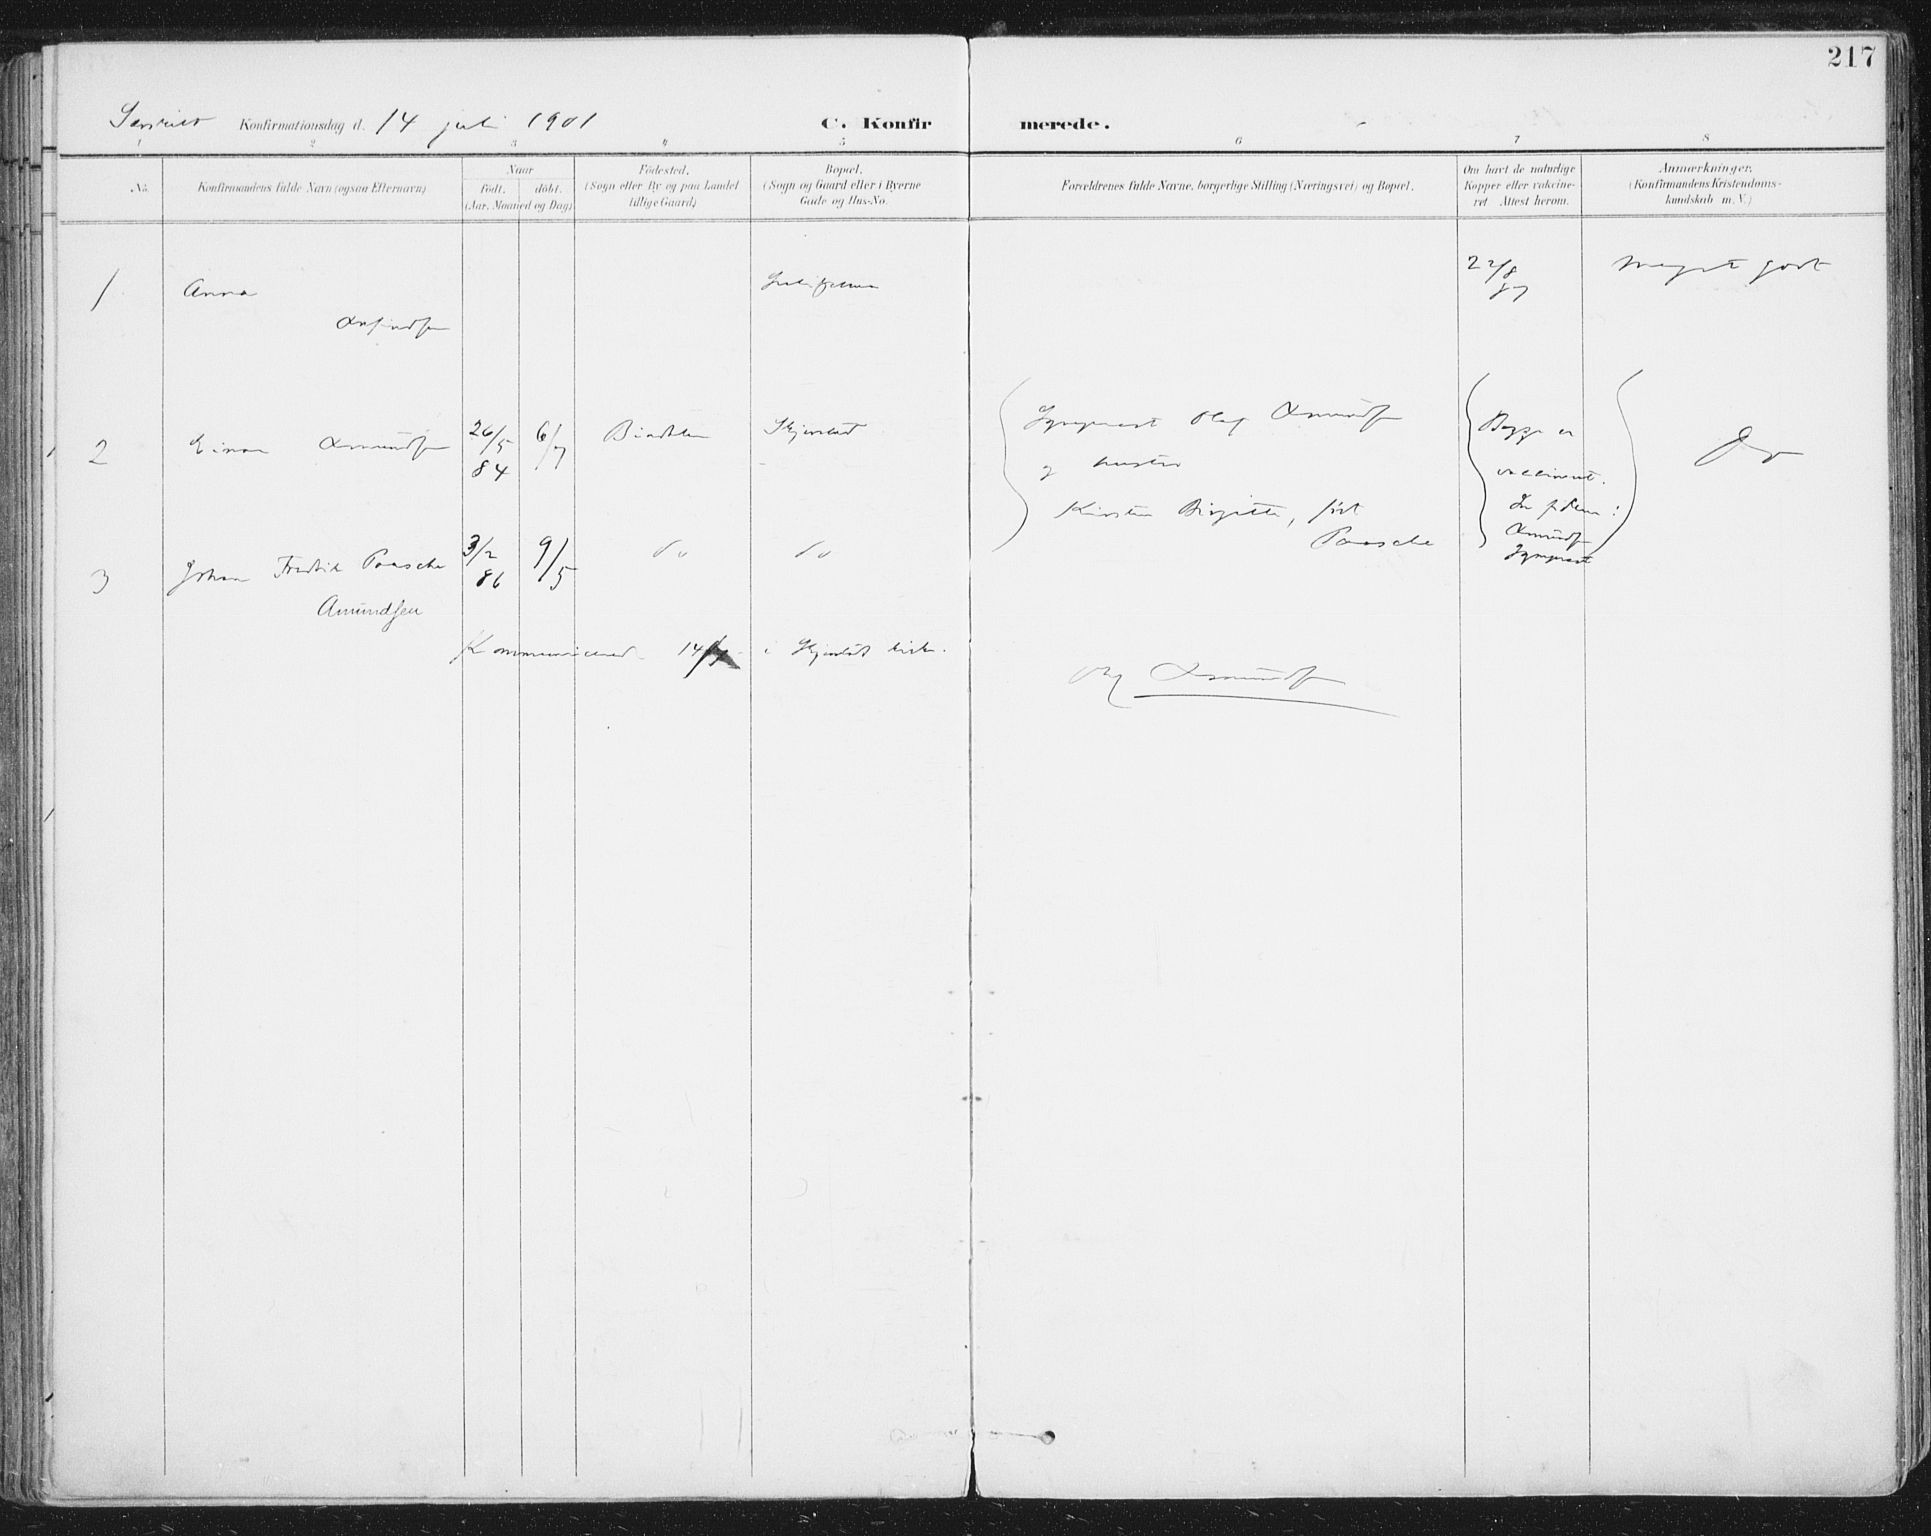 217
Konfirmationsdag d. 14 juli 1901 C. Konfir merede.
1 2 3 4 5 6 7 8
No. Konfirmandens fulde Navn (ogsaa Efternavn) Naar Födested. Bopæl. Forældrenes fulde Navne, borgerlige Stilling (Næringsvei) og Bopæl. Om havt de naturlige Anmærkninger.
födt. döbt. (Sogn eller By og paa Landet (Sogn og Gaard eller i Byerne Kopper eller vakcine- (Konfirmandens Kristendoms-
(Aar, Maaned og Dag) tillige Gaard) Gade og Hus-No. ret Attest herom. kundskab m. V.)
1 Anna 22/8 Meget godt
87
2 Einar Amundsen 26/5 6/7 Skjerstad Olaf Amundsen Begge er Do
84 og hustru vaccineret.
Kirsten Birgitte, født In fidem:
Paasche Amundsen
3 Johan Fredrik Paasche 3/2 9/5 do do
86
Amundsen
14/7 i Skjerstad kirke.
Amundsen